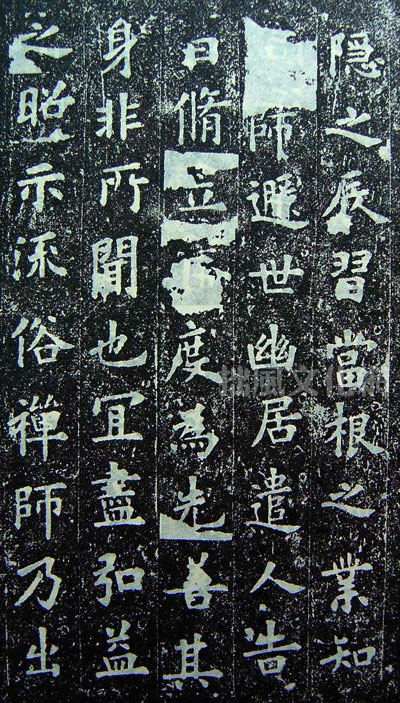 隱之辰習當根之業知
師遯世幽居遣人告
曰脩立度為先善其
身非所聞也宜盡弘益
之昭示流俗禪師乃出